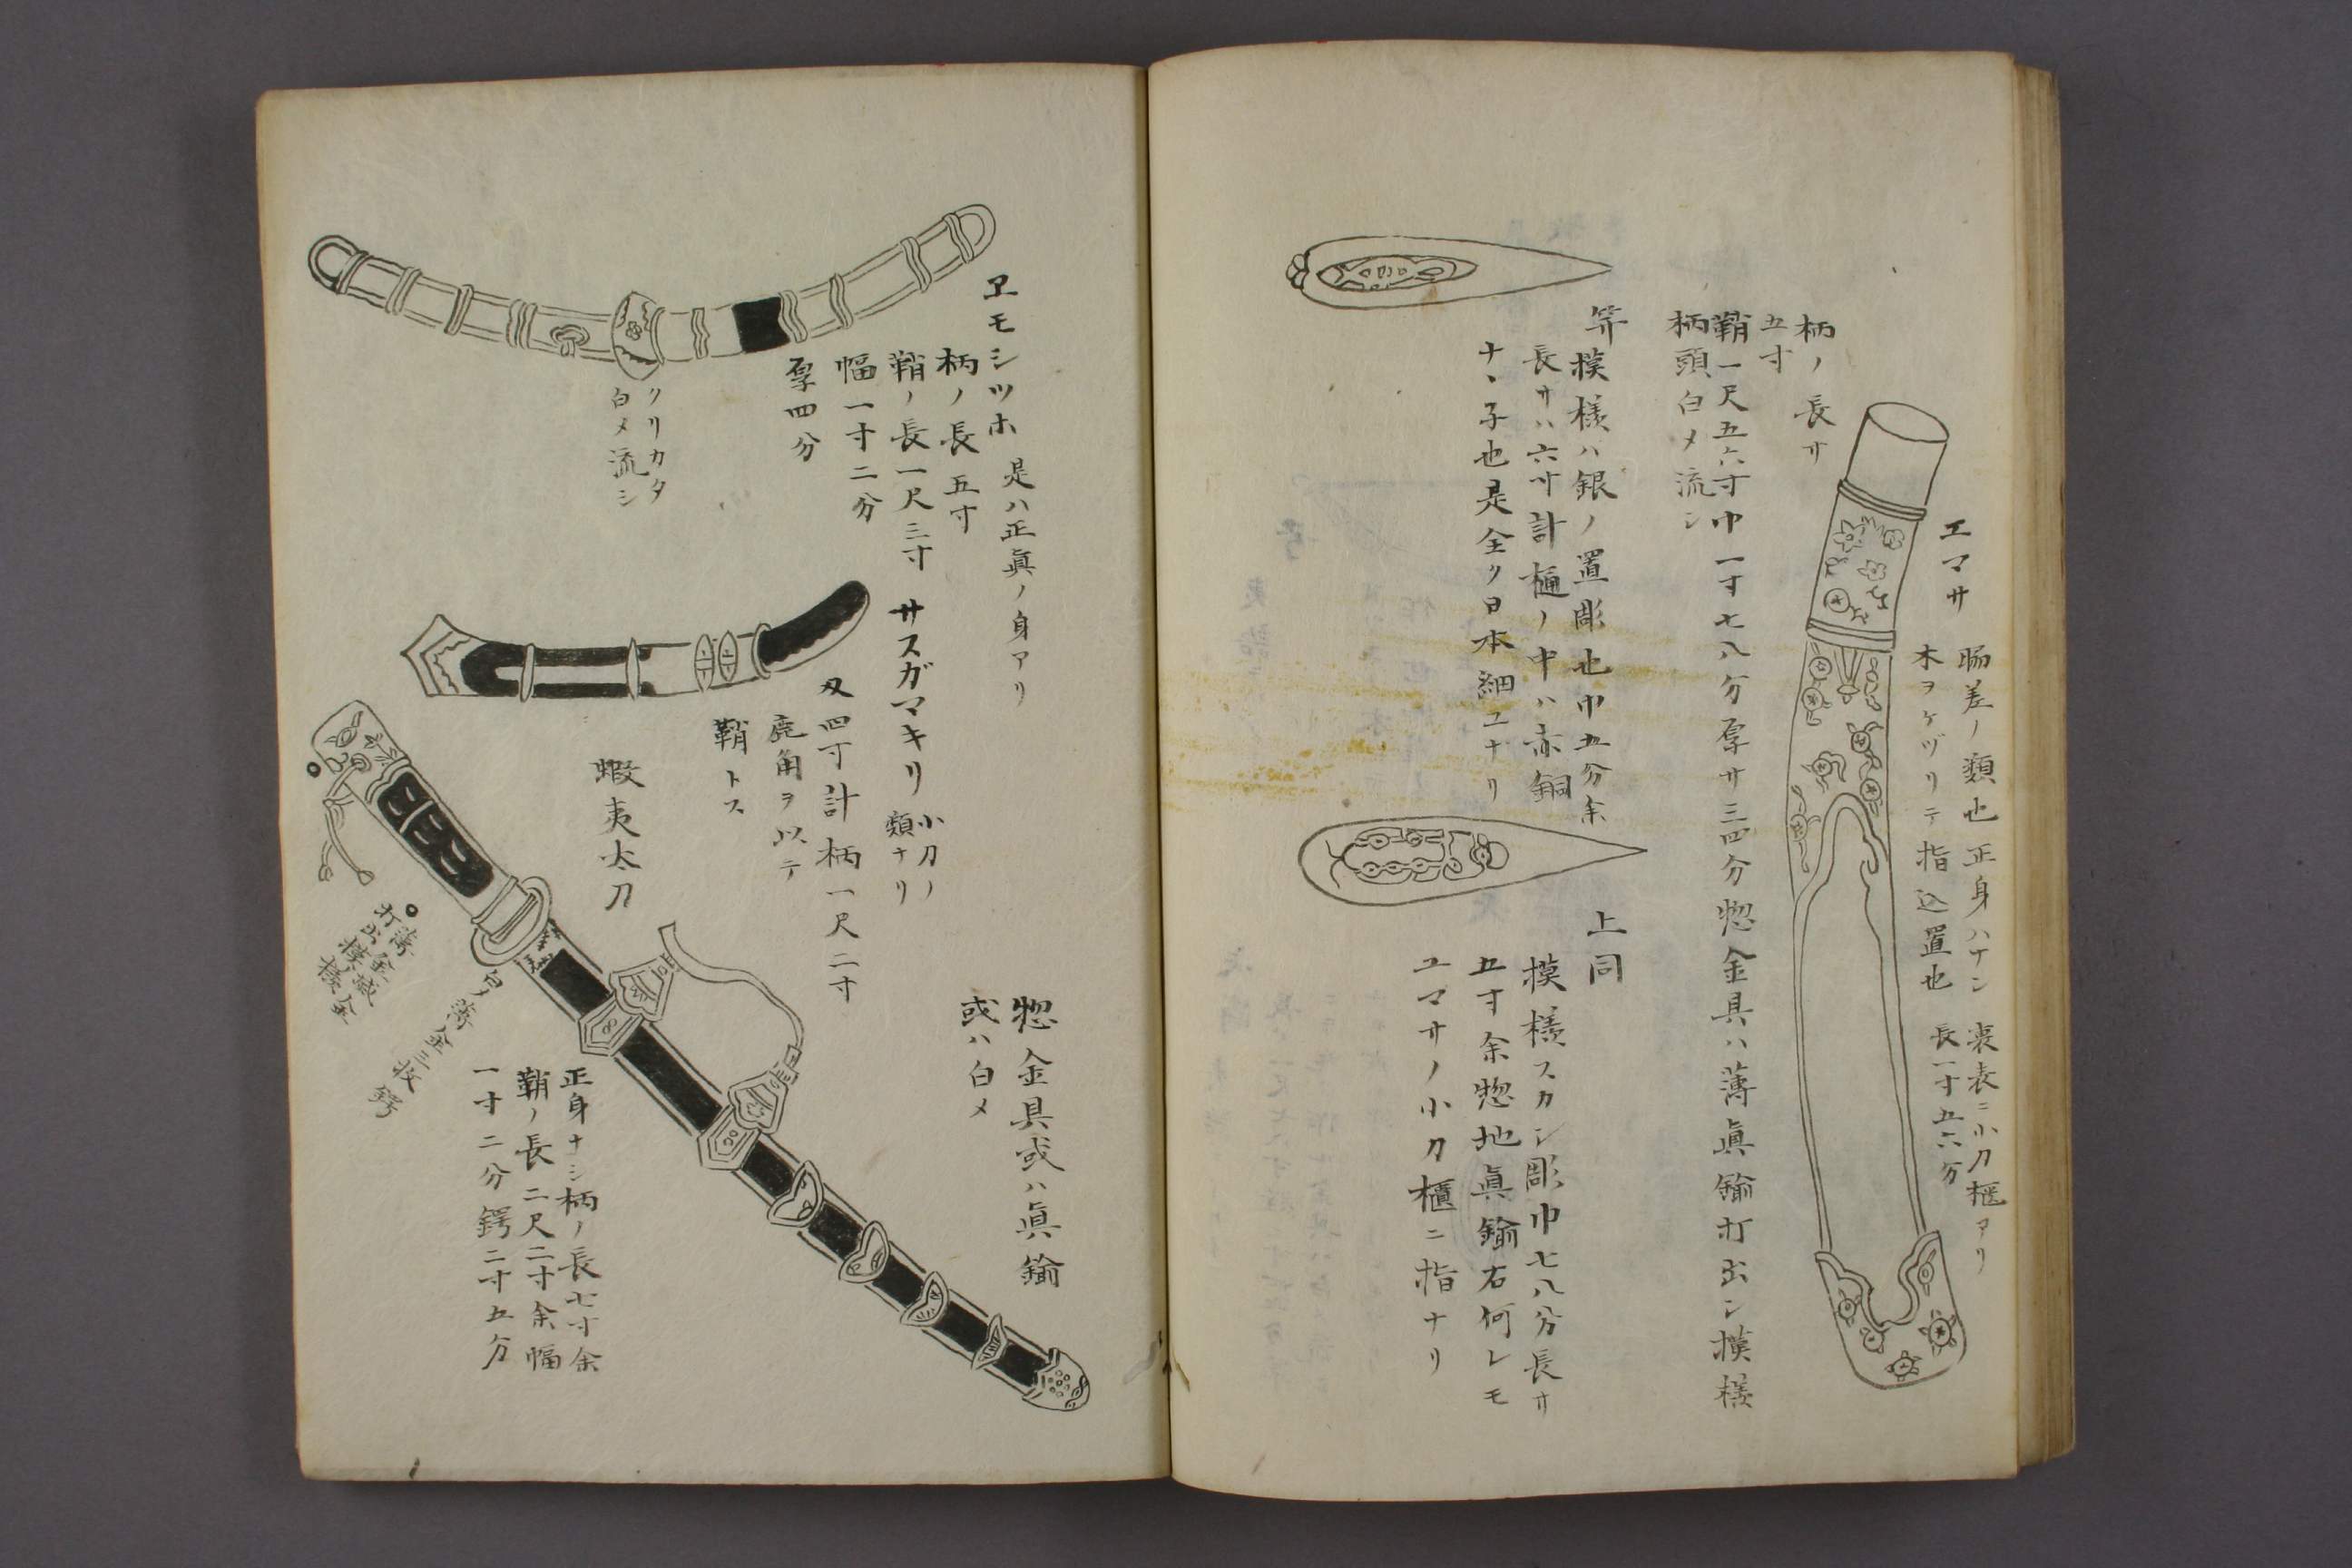 エマサ
脇差ノ類也正身ハナシ 裏表ニ小刀櫃アリ
木ヲケヅリテ指込置也 長一寸五六分
柄ノ長サ
五寸
鞘一尺五六寸巾一寸七八分厚サ三四分惣金具ハ薄眞鍮打出シ模様
柄頭白メ流シ
笄模様ハ銀ノ置彫也巾五分余
長サハ六寸計樋ノ中ハ赤銅
ナヽ子也是全ク日本細エナリ
上同
模様スカシ彫巾七八分長サ
五寸余惣地眞鍮右何レモ
エマサノ小刀櫃ニ指ナリ
ヱモシツホ 是ハ正眞ノ身アリ
柄ノ長五寸
鞘ノ長一尺三寸
幅一寸二分
厚四分
クリカタ
白メ流シ
サスガマキリ 小刀ノ
類ナリ
刄四寸計柄一尺二寸
鹿角ヲ以テ
鞘トス
惣金具或ハ眞鍮
或ハ白メ
蝦夷太刀
薄金
打出模様
白ノ薄金三枚鍔
正身ナシ柄ノ長七寸余
鞘ノ長二尺二寸余幅
一寸二分鍔二寸五分